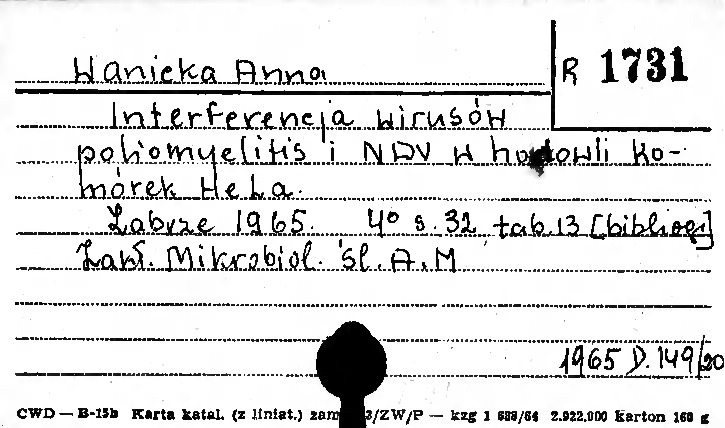 Wanicka Anna
R 1731
Interferencja wirusów
poliomyelitis i NDV w hodowli ko-
mórek HeLa.
Zabrze 1965. 4° s. 32, tab. 13 [bibliogr]
Zakł. Mikrobiol. Śl. A. M
1965 D. 149/20
CWD — B-15b Karta katal. (z liniat.) zam 3/ZW/P — kzg 1 688/64 2.922.000 Karton 160 g